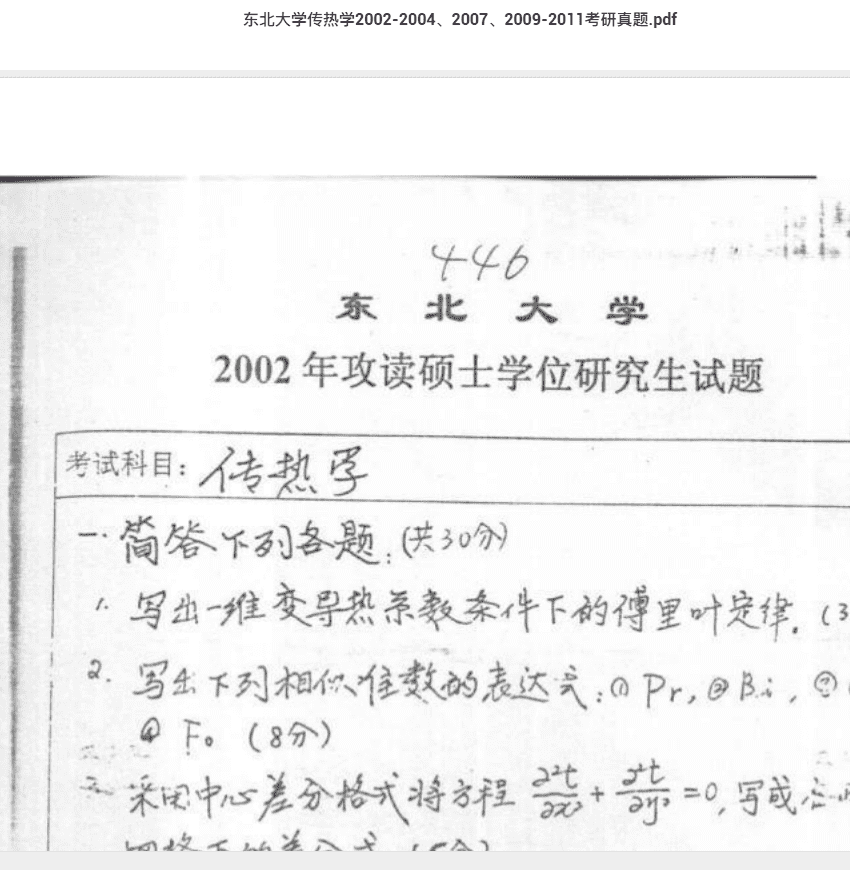 东北大学传热学2002-2004、2007、2009-2011考研真题.pdf
446
东 北 大 学
2002 年攻读硕士学位研究生试题
考试科目：传热学
一. 简答下列各题：(共30分)
1. 写出一维变导热系数条件下的傅里叶定律. (3
2. 写出下列相似准数的表达式：① Pr, ② Bi, ③
④ Fo (8分)
采用中心差分格式将方程 ∂²t/∂x² + ∂²t/∂y² = 0, 写成